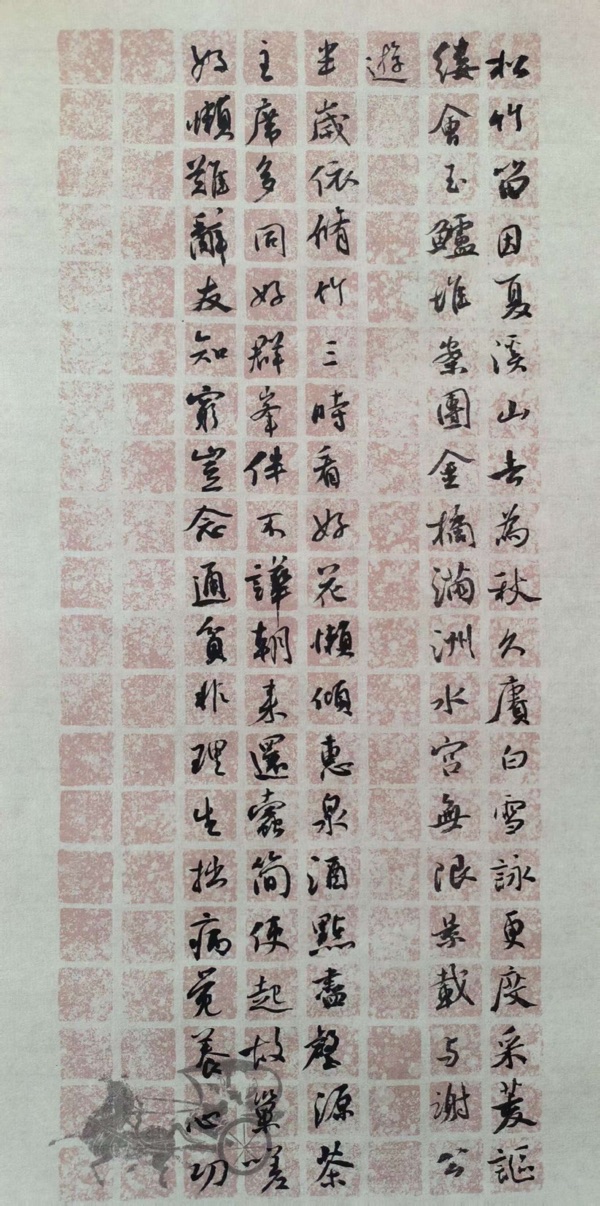 松竹留因夏溪山去為秋久賡白雪詠更度采菱謳
縷會玉鱸堆案團金橘滿洲水宮無限景載与謝公
遊
半歲依脩竹三時看好花懶傾惠泉酒點盡壑源茶
主席多同好群峯伴不譁朝来還蠹簡便起故巢嗟
好懶難辭友知窮豈念通貧非理生拙病覺養心功